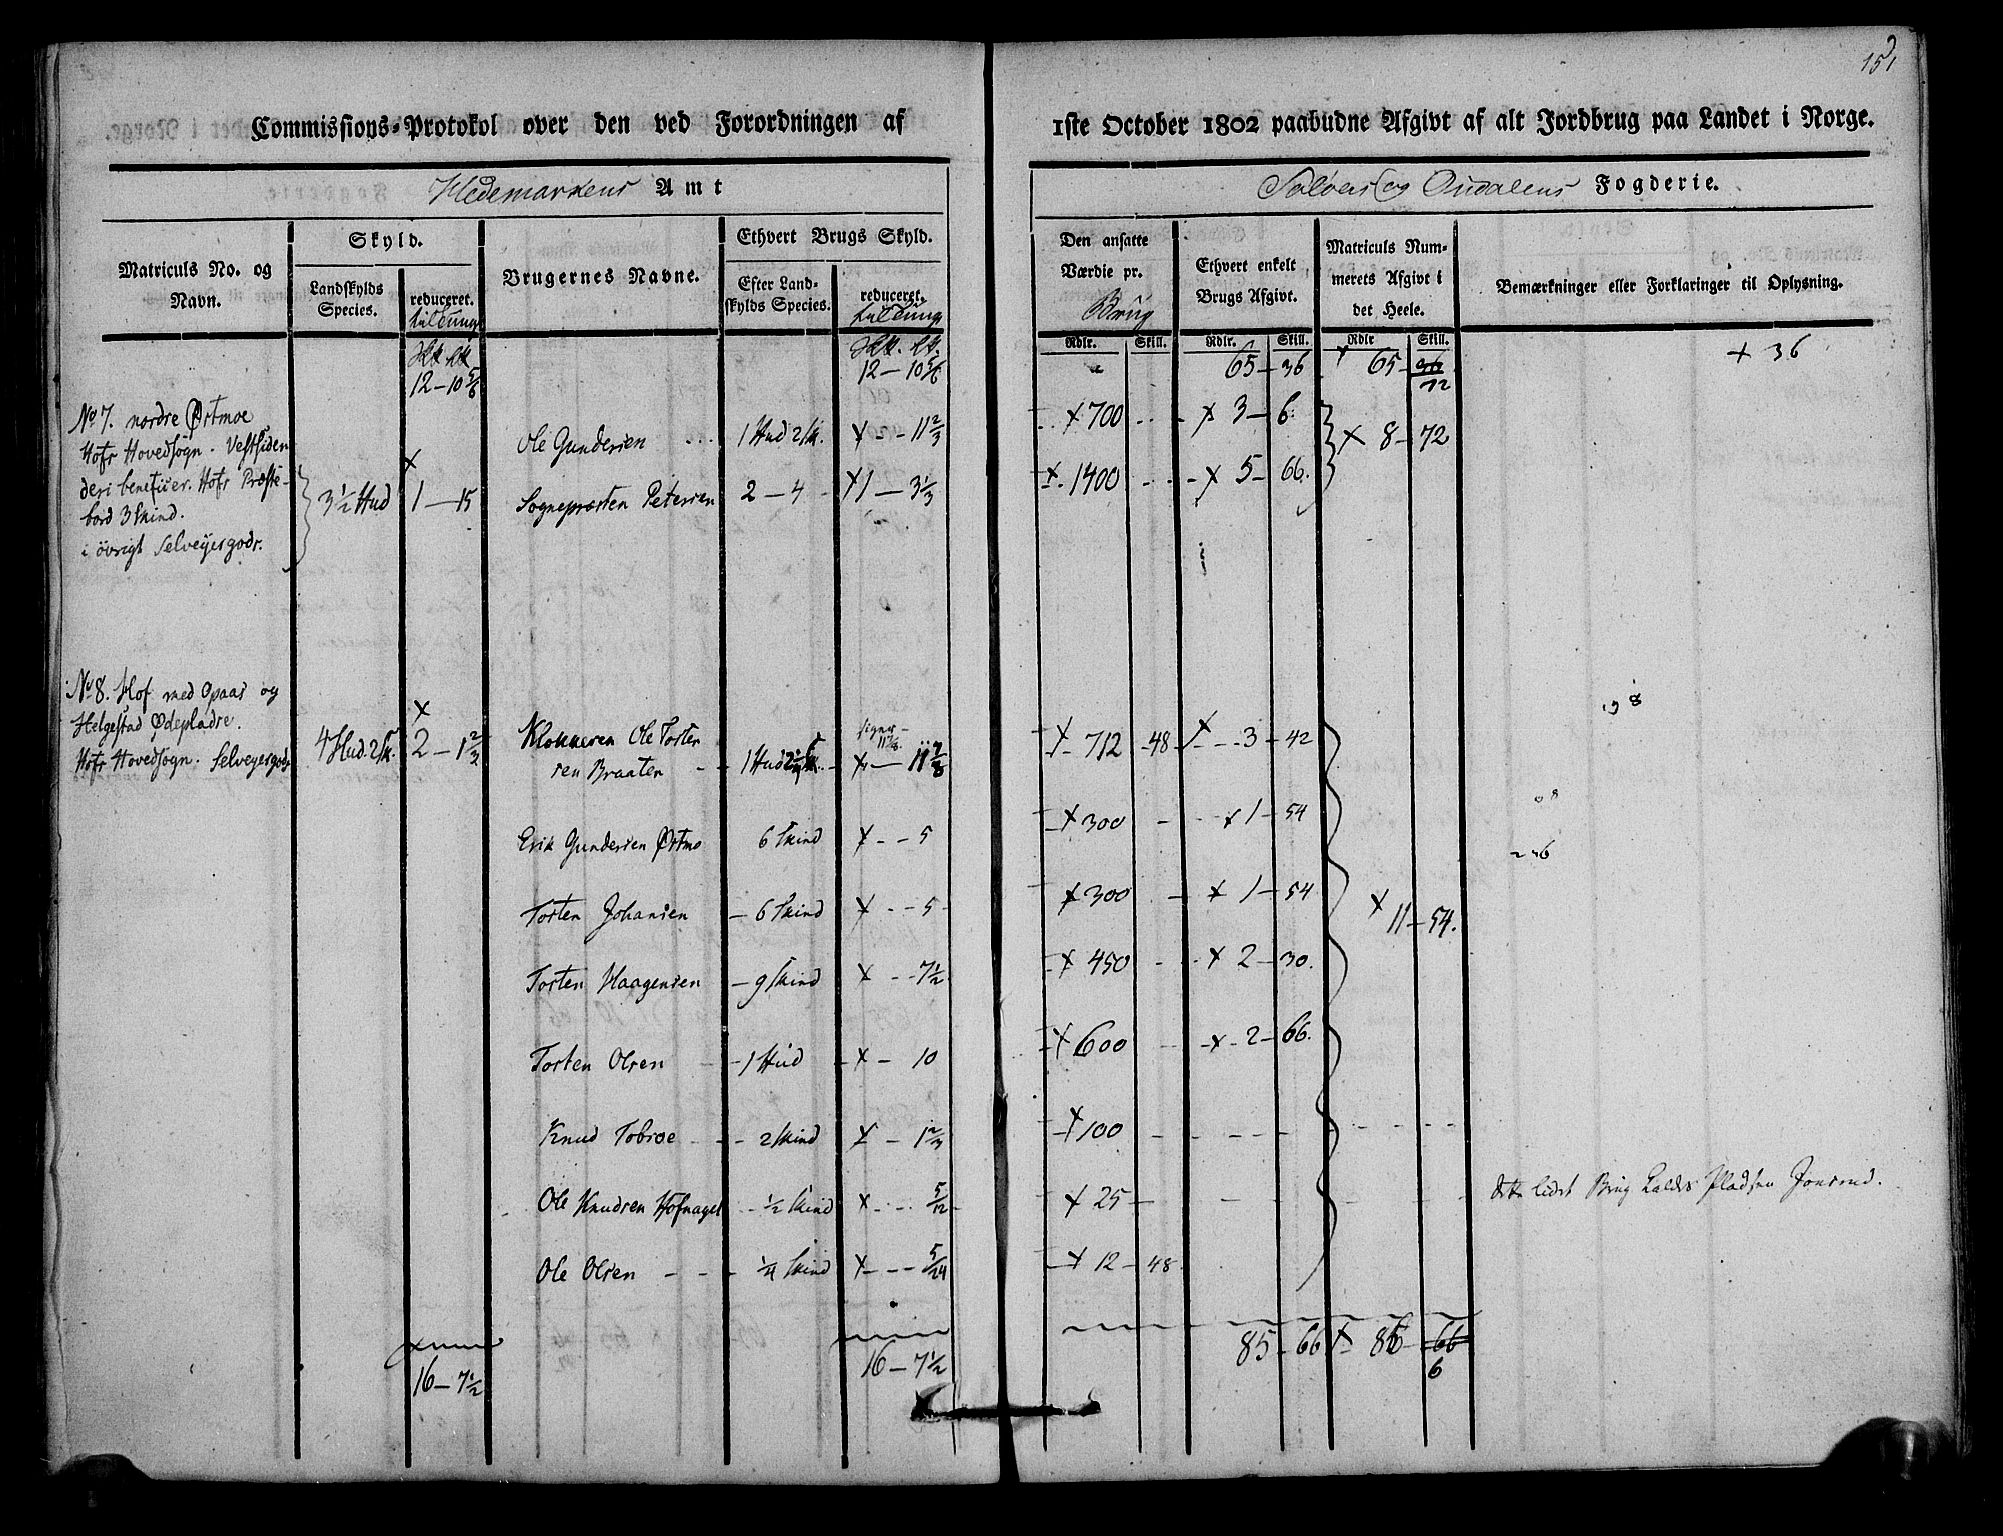 151
Commissions-Protokol over den ved Forordningen af 1ste October 1802 paabudne Afgivt af alt Jordbrug paa Landet i Norge.
Hedemarkens Amt
Soløers og Oudalens Fogderie.
Matriculs No. og Navn.
Skyld.
Landskylds Species.
reduceret.
Brugernes Navne.
Ethvert Brugs Skyld.
Efter Landskylds Species.
reduceret.
Den ansatte Værdie pr. Brug
Ethvert enkelt Brugs Afgivt.
Matriculs Nummerets Afgivt i det Heele.
Bemærkninger eller Forklaringer til Oplysning.
Rdlr. Skill. Rdlr. Skill. Rdlr Skill.
12 – 10 5/6 12 – 10 5/6 65 – 36 x 65 – 36 72 + 36
No 7. nordre Østmoe
Hofs Hovedsogn. Vestsiden
deri beneficer. Hofs Præste-
bord 3 Skind.
i övrigt Selveyergods.
3 1/2 Hud x 1 – 15
Ole Gundersen 1 Hud 2 Sk. x – – 11 2/3 x 700 x 3 – 6. x 8 – 72
Sognepræsten Petersen 2 – 4 x 1 – 3 1/3 x 1400 x 5 – 66.
No 8. Hof med Opaas og
Helgestad Ødepladse.
Hofs Hovedsogn. Selveyergods
4 Hud 2 Sk. x 2 – 1 2/3
Klokkeren Ole Torstensen Braaten 1 Hud 2 1/4 Sk. x – 11 7/8 x 712 – 48 x 3 – 42
Erik Gundersen Østmo 6 Skind x – – 5 x 300 x 1 – 54
Torsten Johansen – 6 Skind x – – 5 x 300 x 1 – 54 x 11 – 54.
Torsten Haagensen – 9 Skind x – – 7 1/2 x 450 x 2 – 30.
Torsten Olsen – 1 Hud x – 10 x 600 x 2 – 66.
Knud Tobroe – – 2 Skind x – 1 2/3 x 100
Ole Knudsen Hofnagel – 1/2 Skind x – – 5/12 x 25 dette lidet Brug kaldes Pladsen Jonsrud.
Ole Olsen – – – 1/4 Skind x – – – 5/24 x 12 – 48
16 – 7 1/2 16 – 7 1/2 85 – 66 x 86 – 66
6